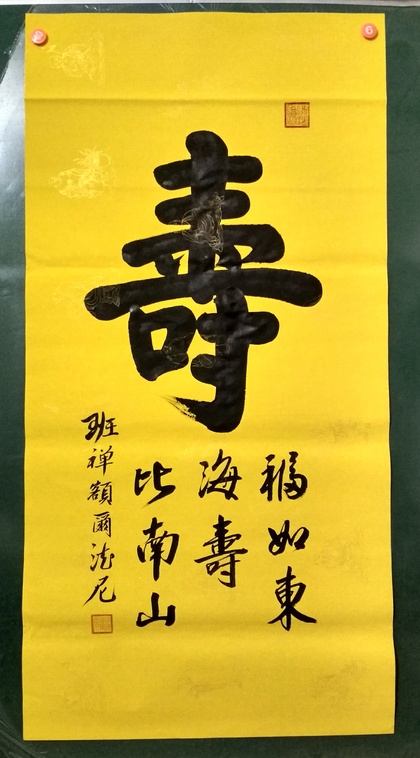 壽
福如東
海壽
比南山
班禅額爾德尼